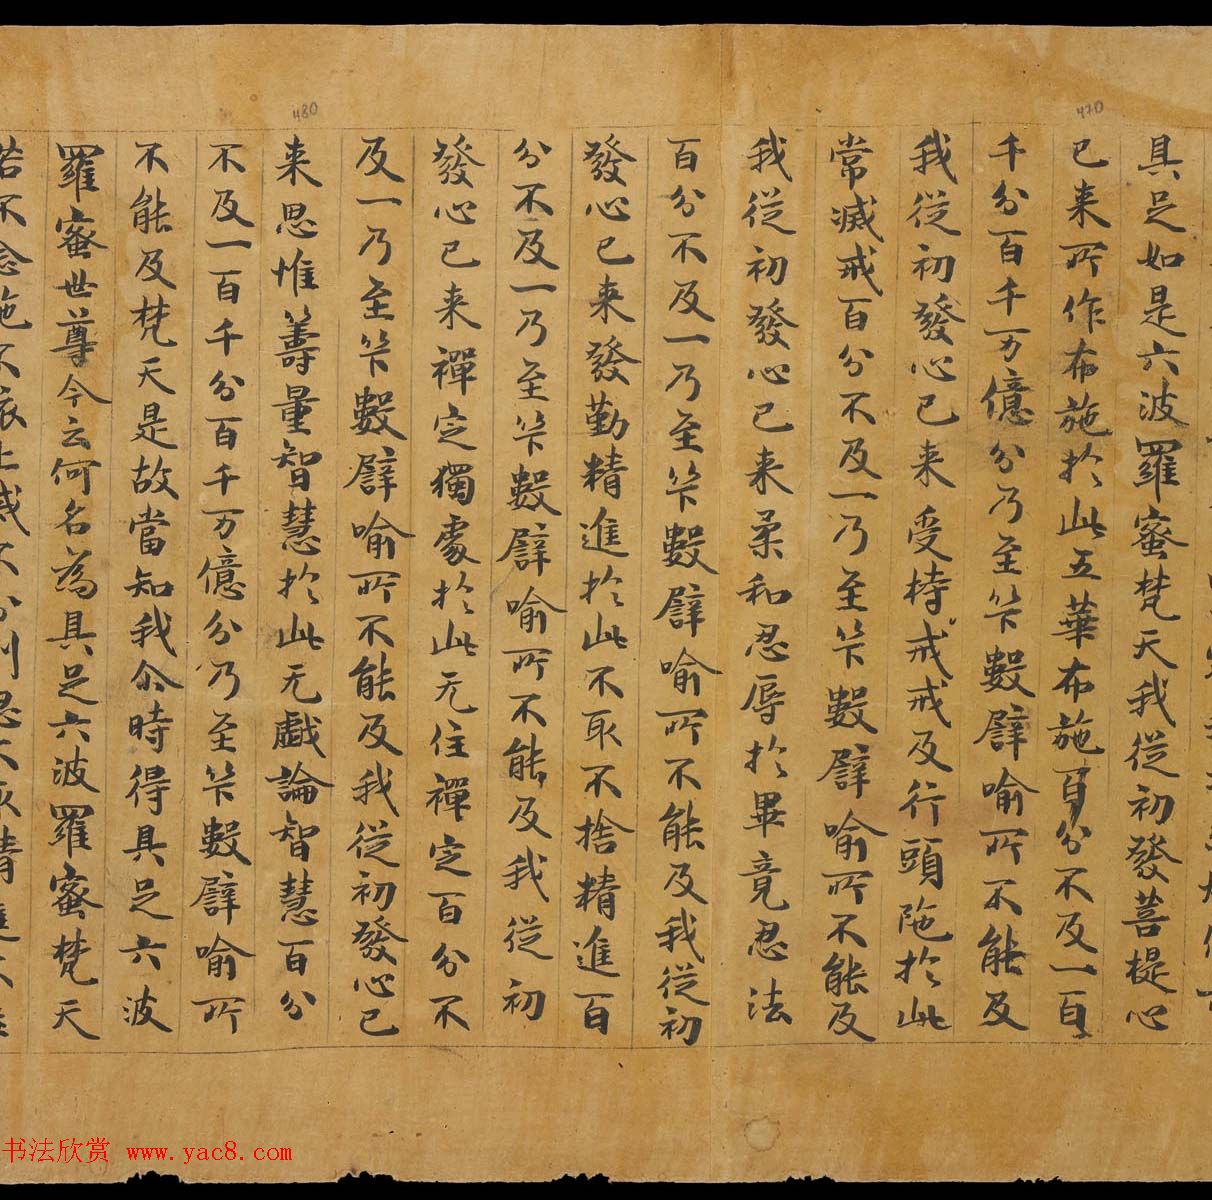 具足如是六波羅蜜梵天我從初發菩提心
已来所作布施於此五華布施百分不及一百
千分百千万億分乃至筭數譬喻所不能及
我從初發心已来受持戒戒及行頭陁於此
常滅戒百分不及一乃至筭數譬喻所不能及
我從初發心已来柔和忍辱於畢竟忍法
百分不及一乃至筭數譬喻所不能及我從初
發心已来發勤精進於此不取不捨精進百
分不及一乃至筭數譬喻所不能及我從初
發心已来禪定獨處於此无住禪定百分不
及一乃至筭數譬喻所不能及我從初發心已
来思惟籌量智慧於此无戲論智慧百分
不及一百千分百千万億分乃至筭數譬喻所
不能及梵天是故當知我尒時得具足六波
羅蜜世尊今云何名為具足六波羅蜜梵天
若不念施不依止戒不分別忍不取精進不住
470
480
书法欣赏 www.yac8.com